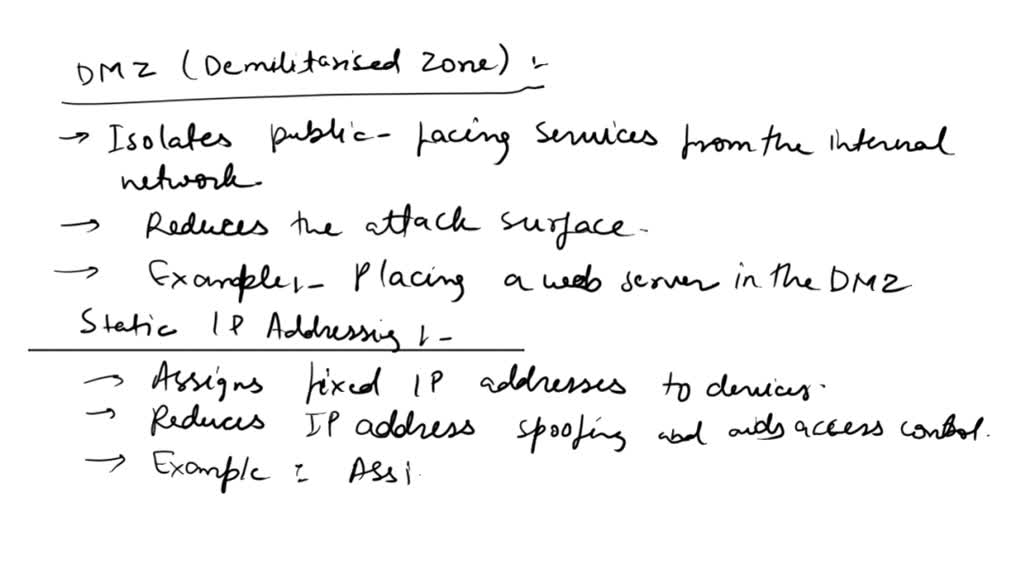 DMZ (Demilitarised Zone) :-
→ Isolates public-facing services from the internal
network.
→ Reduces the attack surface.
→ Example:- Placing a web server in the DMZ
Static IP Addressing :-
→ Assigns fixed IP addresses to devices.
→ Reduces IP address spoofing and aids access control.
→ Example : Assi